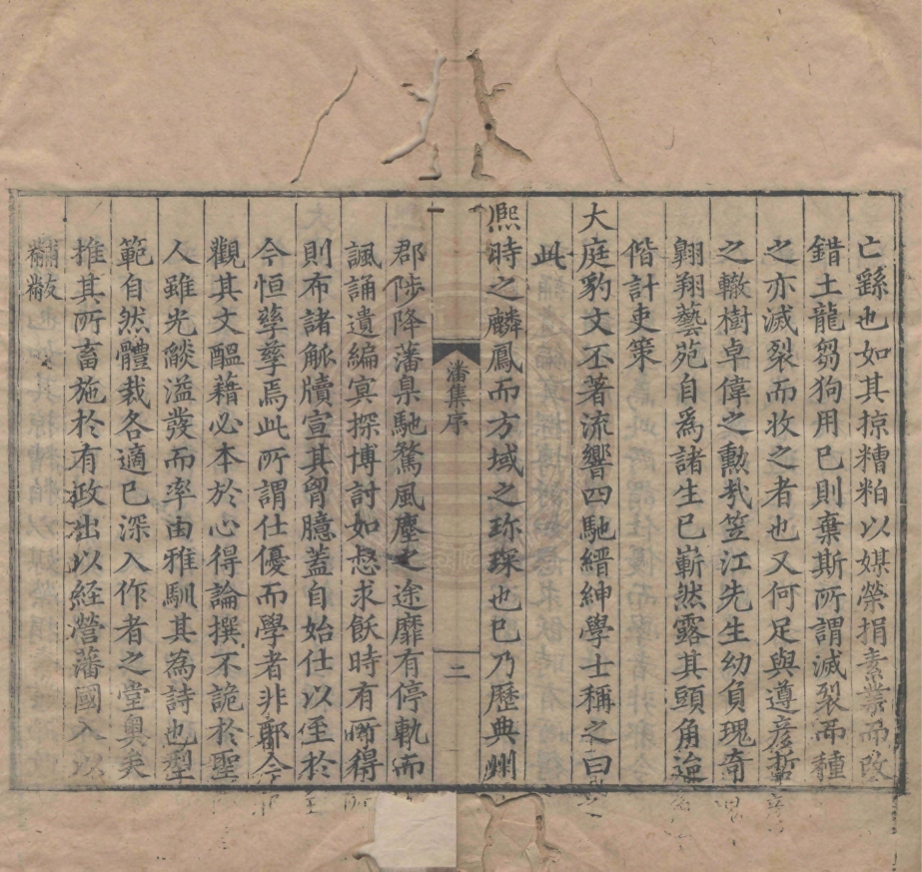 亡繇也如其掠糟粕以媒榮捐素業而改
錯土龍芻狗用已則棄斯所謂滅裂而種
之亦滅裂而收之者也又何足與遵彦哲
之轍樹卓偉之勳哉笠江先生幼負瑰奇
翱翔藝苑自爲諸生已嶄然露其頭角迨
偕計吏策
大庭豹文丕著流響四馳縉紳學士稱之曰
此
熈時之麟鳳而方域之珎琛也已乃歷典州
潘集序
二
郡陟降藩臬馳騖風塵之途靡有停軌而
諷誦遺編寅探博討如惄求飫時有所得
則布諸觚牘宣其胷臆蓋自始仕以至於
今恒孳孳焉此所謂仕優而學者非鄒今
觀其文醖藉必本於心得論撰不詭於聖
人雖光燄溢發而率由雅馴其為詩也型
範自然體裁各適已深入作者之堂奥矣
推其所畜施於有政出以経營藩國入以
黼黻